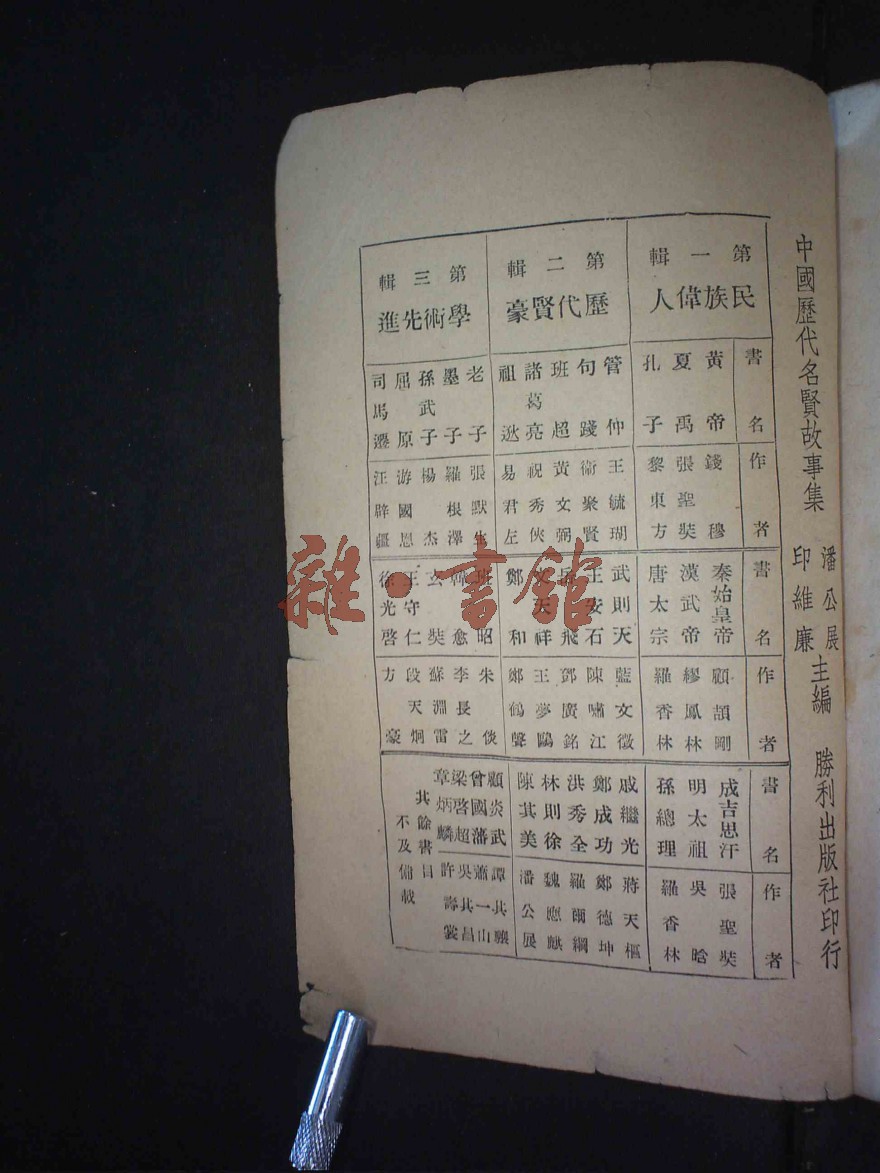 中國歷代名賢故事集
潘公展
印維廉
主編
勝利出版社印行
書名
作者
書名
作者
書名
作者
第一輯
民族偉人
黃帝
夏禹
孔子
錢穆
張聖奘
黎東方
秦始皇帝
漢武帝
唐太宗
顧頡剛
繆鳳林
羅香林
成吉思汗
明太祖
孫總理
張聖奘
吳晗
羅香林
第二輯
歷代賢豪
管仲
句踐
班超
諸葛亮
祖逖
王毓瑚
衛聚賢
黃文弼
祝秀俠
易君左
武則天
王安石
岳飛
文天祥
鄭和
藍文徵
陳嘯江
鄧廣銘
王夢鷗
鄭鶴聲
戚繼光
鄭成功
洪秀全
林則徐
陳其美
蔣天樞
鄭德坤
羅爾綱
魏應麒
潘公展
第三輯
學術先進
老子
墨子
孫武子
屈原
司馬遷
張默生
羅根澤
楊杰
游國恩
汪辟疆
班昭
韓愈
玄奘
王守仁
徐光啓
朱倓
李長之
蘇淵雷
段天炯
方豪
顧炎武
曾國藩
梁啓超
章炳麟
譚其驤
蕭一山
吳其昌
許壽裳
其餘書目
不及備載
雜·書館